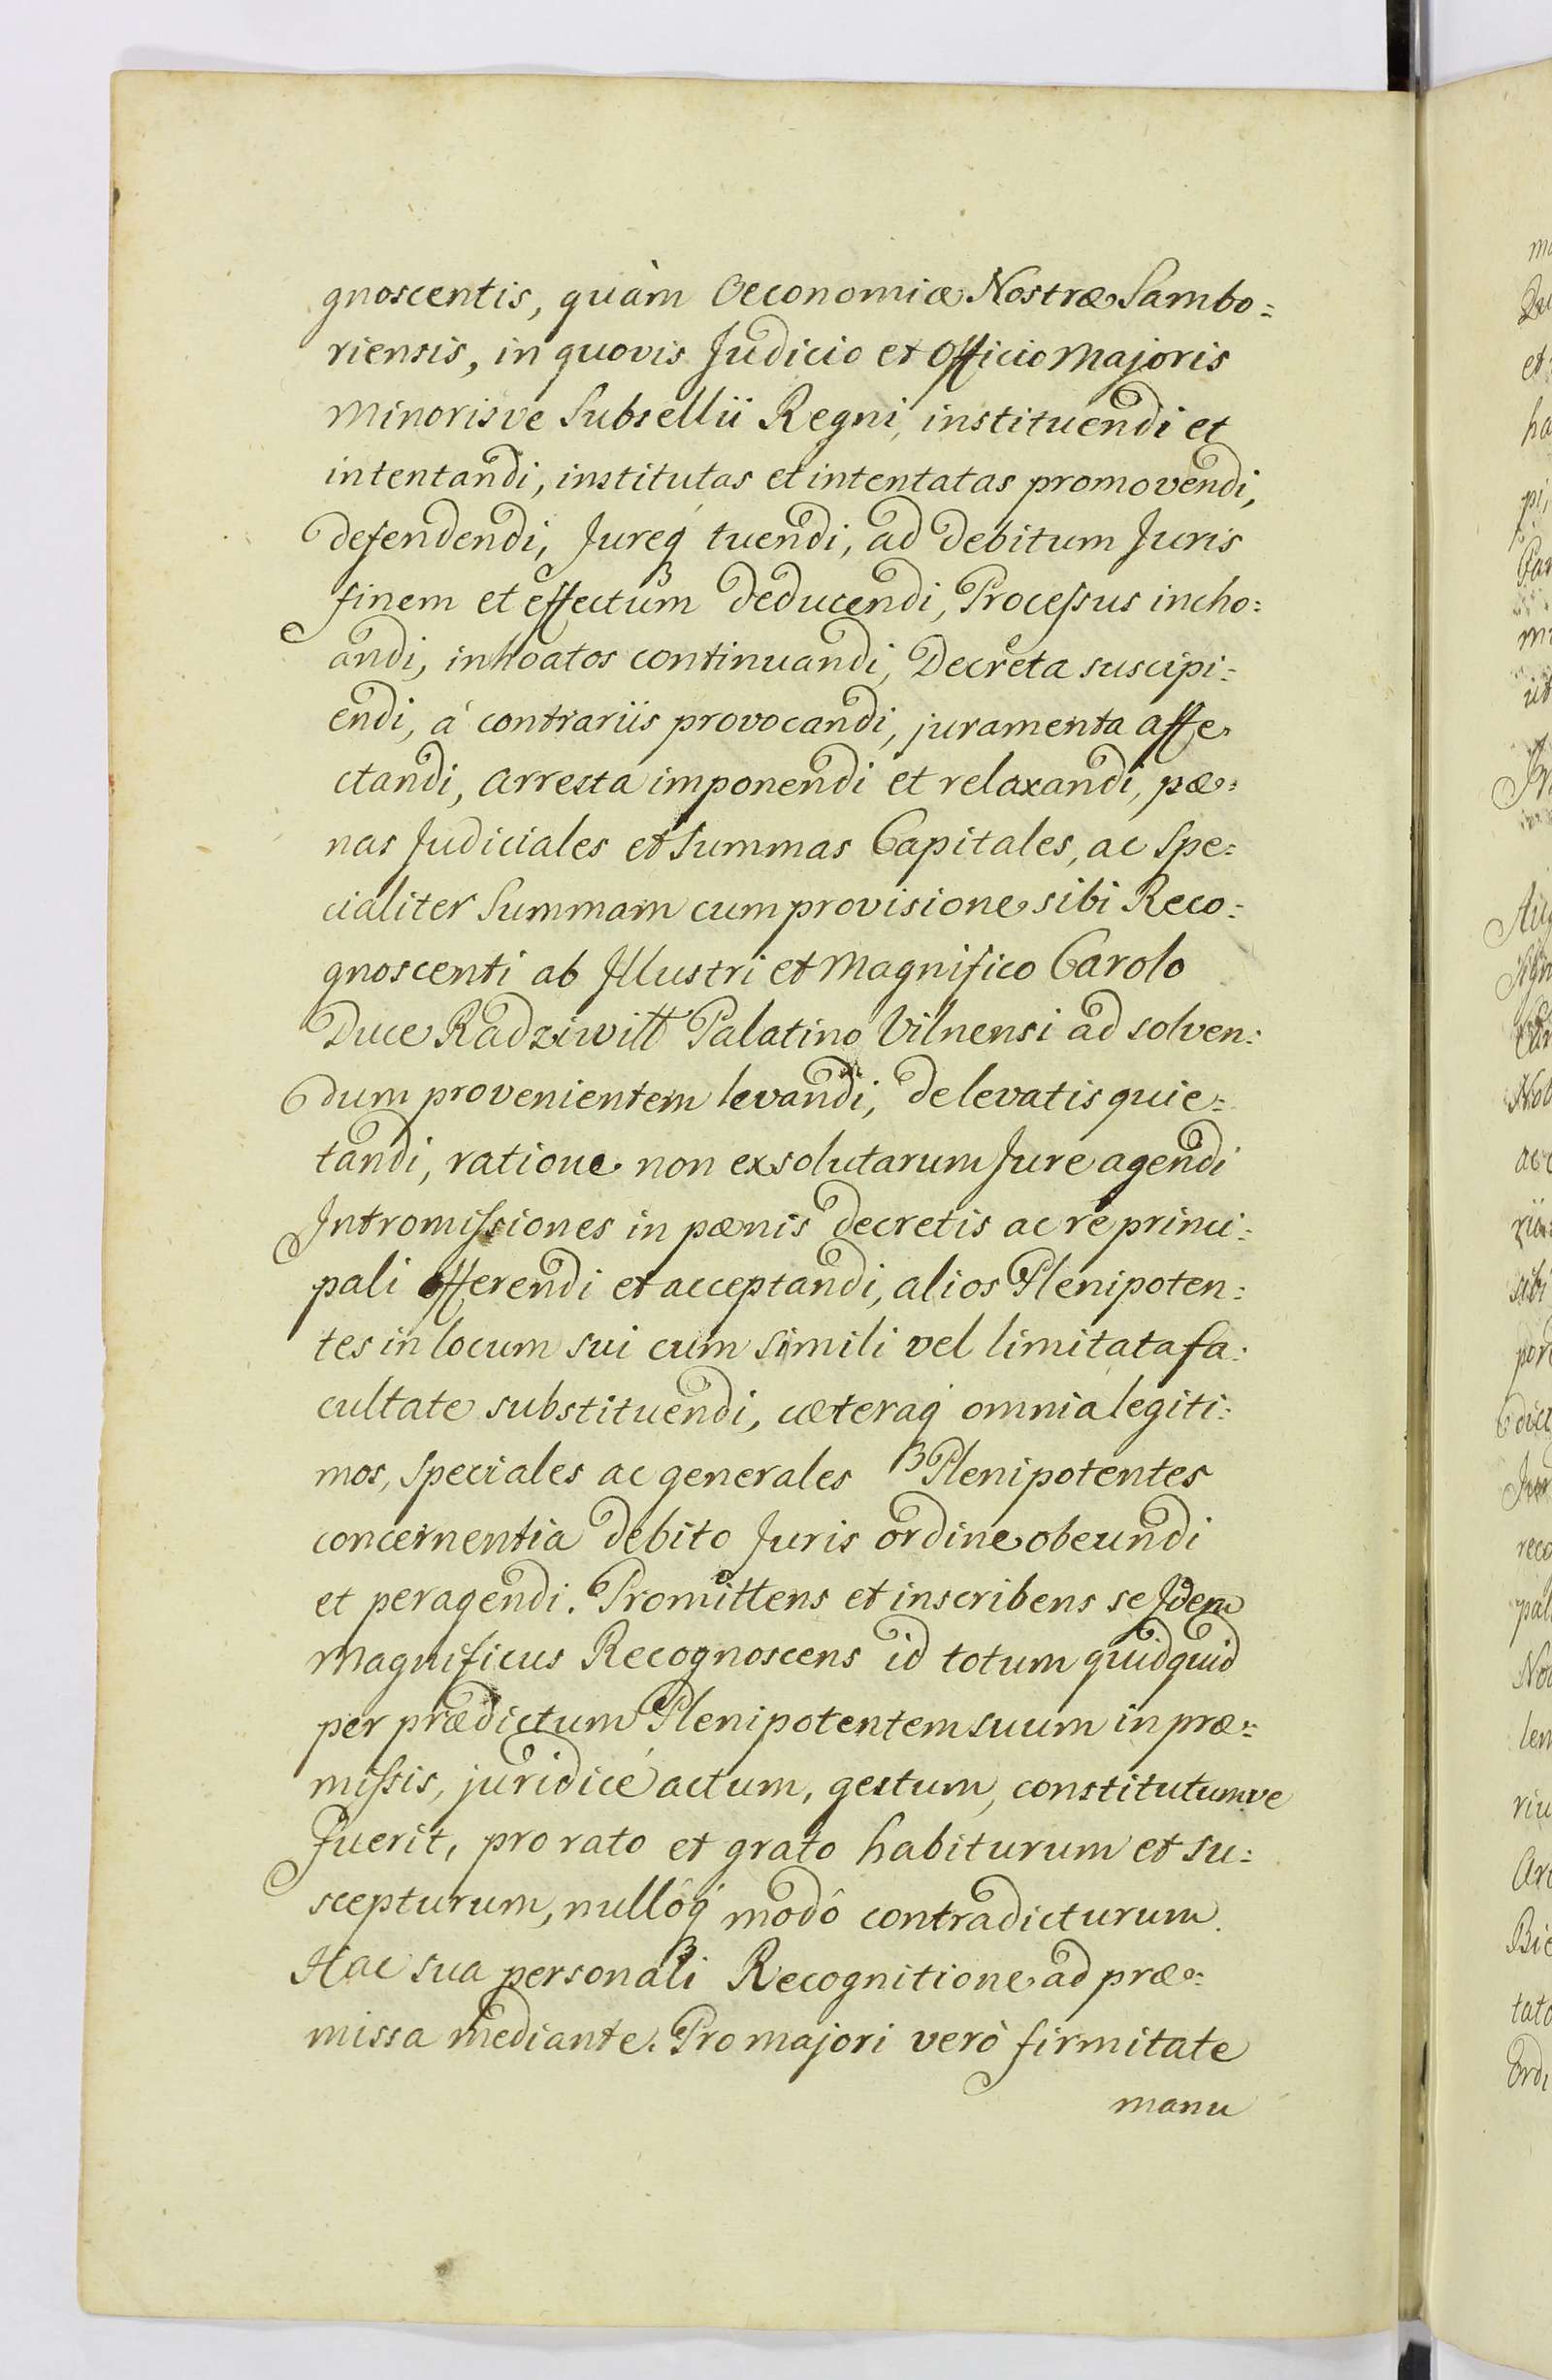 gnoscentis, quàm Oeconomiæ Nostræ Sambo:
riensis, in quovis Judicio et Officio Majoris
Minorisve Subsellii Regni, instituendi et
intentandi, institutas et intentatas promovendi,
defendendi, Jureq́ tuendi, ad debitum Juris
finem et effectum deducendi, Processus incho:
andi, inhoatos continuandi, Decreta suscipi:
endi, à contrariis provocandi, juramenta affe
ctandi, arresta imponendi et relaxandi, pæ:
nas Judiciales et Summas Capitales, ac Spe:
cialiter Summam cum provisione sibi Reco:
gnoscenti ab Illustri et Magnifico Carolo
Duce Radziwiłł Palatino Vilnensi ad solven:
dum provenientem levandi, de levatis quie:
tandi, ratione non exsolutarum Jure agendi
Intromissiones in pænis decretis ac re princi:
pali offerendi et acceptandi, alios Plenipoten:
tes in locum sui cum simili vel limitata fa:
cultate substituendi, cæteraq́ omnia legiti:
mos, speciales ac generales Plenipotentes
concernentia debito Juris ordine obeundi
et peragendi. Promittens et inscribens se Idem
Magnificus Recognoscens id totum quidquid
per prædictum Plenipotentem suum in præ:
missis, juridicé actum, gestum, constitutumve
fuerit, pro rato et grato habiturum et su:
scepturum, nullôq́ modô contradicturum.
Hac sua personali Recognitione ad præ:
missa mediante. Pro majori verò firmitate
manu